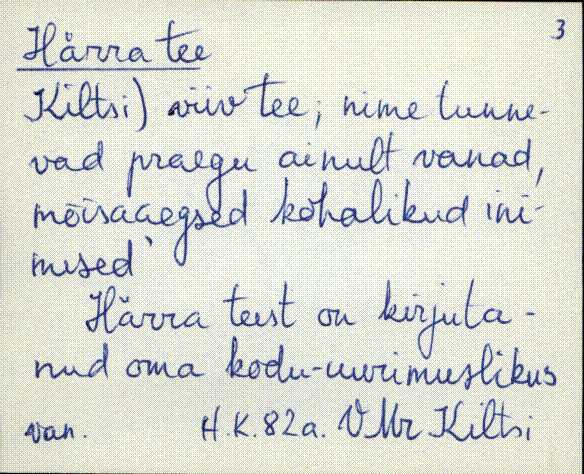 3
Härra tee
Kiltsi) viiv tee; nime tunne-
vad praegu ainult vanad,
mõisaaegsed kohalikud ini-
mesed
Härra teest on kirjuta-
nud oma kodu-uurimuslikus
van. H.K. 82a. VMr Kiltsi